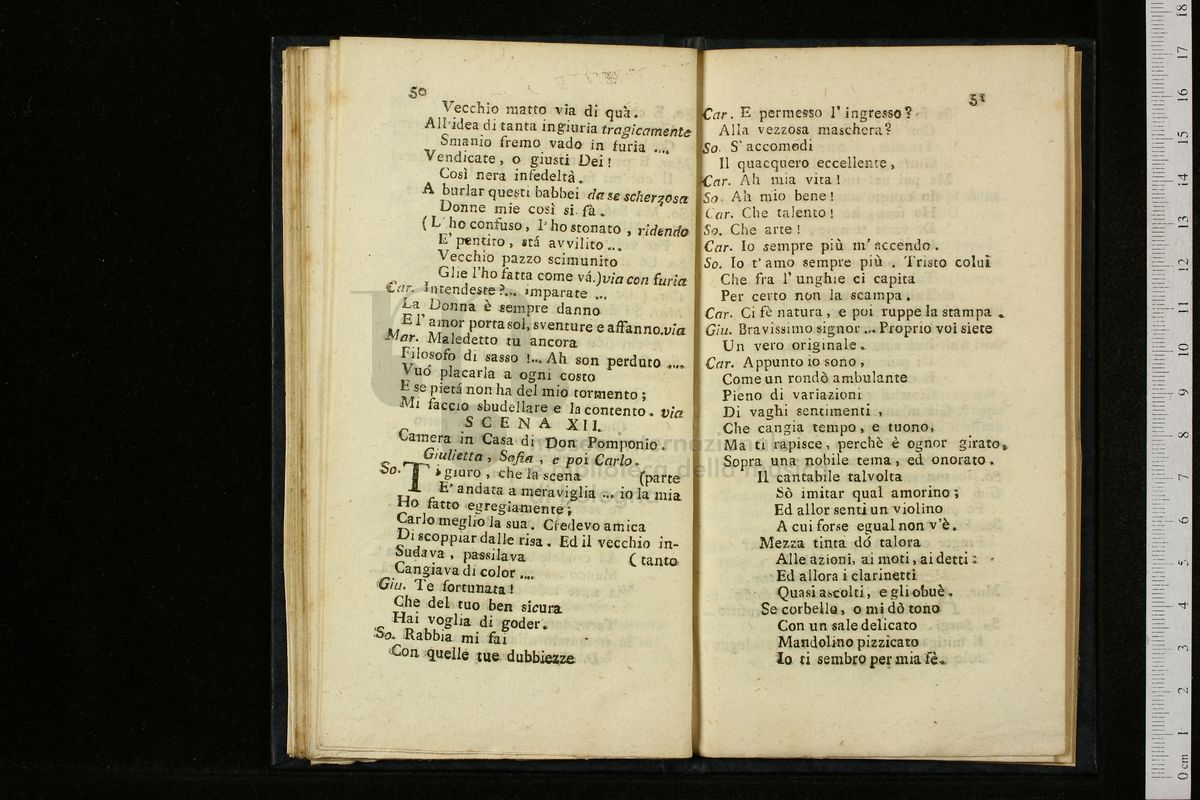 50
Vecchio matto via di quà.
All'idea di tanta ingiuria tragicamente
Smanio fremo vado in furia ....
Vendicate, o giusti Dei!
Così nera infedeltà.
A burlar questi babbei da se scherzosa
Donne mie così si fà.
(L'ho confuso, l'ho stonato, ridendo
E' pentito, stá avvilito...
Vecchio pazzo scimunito
Glie l'ho fatta come vá.) via con furia
Car. Intendeste?... imparate ...
La Donna è sempre danno
E l'amor porta sol, sventure e affanno. via
Mar. Maledetto tu ancora
Filosofo di sasso !... Ah son perduto ....
Vuó placarla a ogni costo
E se pietá non ha del mio tormento;
Mi faccio sbudellare e la contento. via
SCENA XII.
Camera in Casa di Don Pomponio.
Giulietta, Sofia, e poi Carlo.
So. Ti giuro, che la scena (parte
E' andata a meraviglia ... io la mia
Ho fatto egregiamente;
Carlo meglio la sua. Credevo amica
Di scoppiar dalle risa. Ed il vecchio in-
Sudava, passilava (tanto
Cangiava di color ....
Giu. Te fortunata!
Che del tuo ben sicura
Hai voglia di goder.
So. Rabbia mi fai
Con quelle tue dubbiezze
51
Car. E permesso l'ingresso?
Alla vezzosa maschera?
So. S'accomodi
Il quacquero eccellente,
Car. Ah mia vita!
So. Ah mio bene!
Car. Che talento!
So. Che arte!
Car. Io sempre più m'accendo.
So. Io t'amo sempre più. Tristo colui
Che fra l'unghie ci capita
Per certo non la scampa.
Car. Ci fè natura, e poi ruppe la stampa.
Giu. Bravissimo signor ... Proprio voi siete
Un vero originale.
Car. Appunto io sono,
Come un rondò ambulante
Pieno di variazioni
Di vaghi sentimenti,
Che cangia tempo, e tuono,
Ma ti rapisce, perchè è ognor girato,
Sopra una nobile tema, ed onorato.
Il cantabile talvolta
Sò imitar qual amorino;
Ed allor senti un violino
A cui forse egual non v'è.
Mezza tinta dó talora
Alle azioni, ai moti, ai detti:
Ed allora i clarinetti
Quasi ascolti, e gli obuè.
Se corbello, o mi dò tono
Con un sale delicato
Mandolino pizzicato
Io ti sembro per mia fè.
0 cm 1 2 3 4 5 6 7 8 9 10 11 12 13 14 15 16 17 18